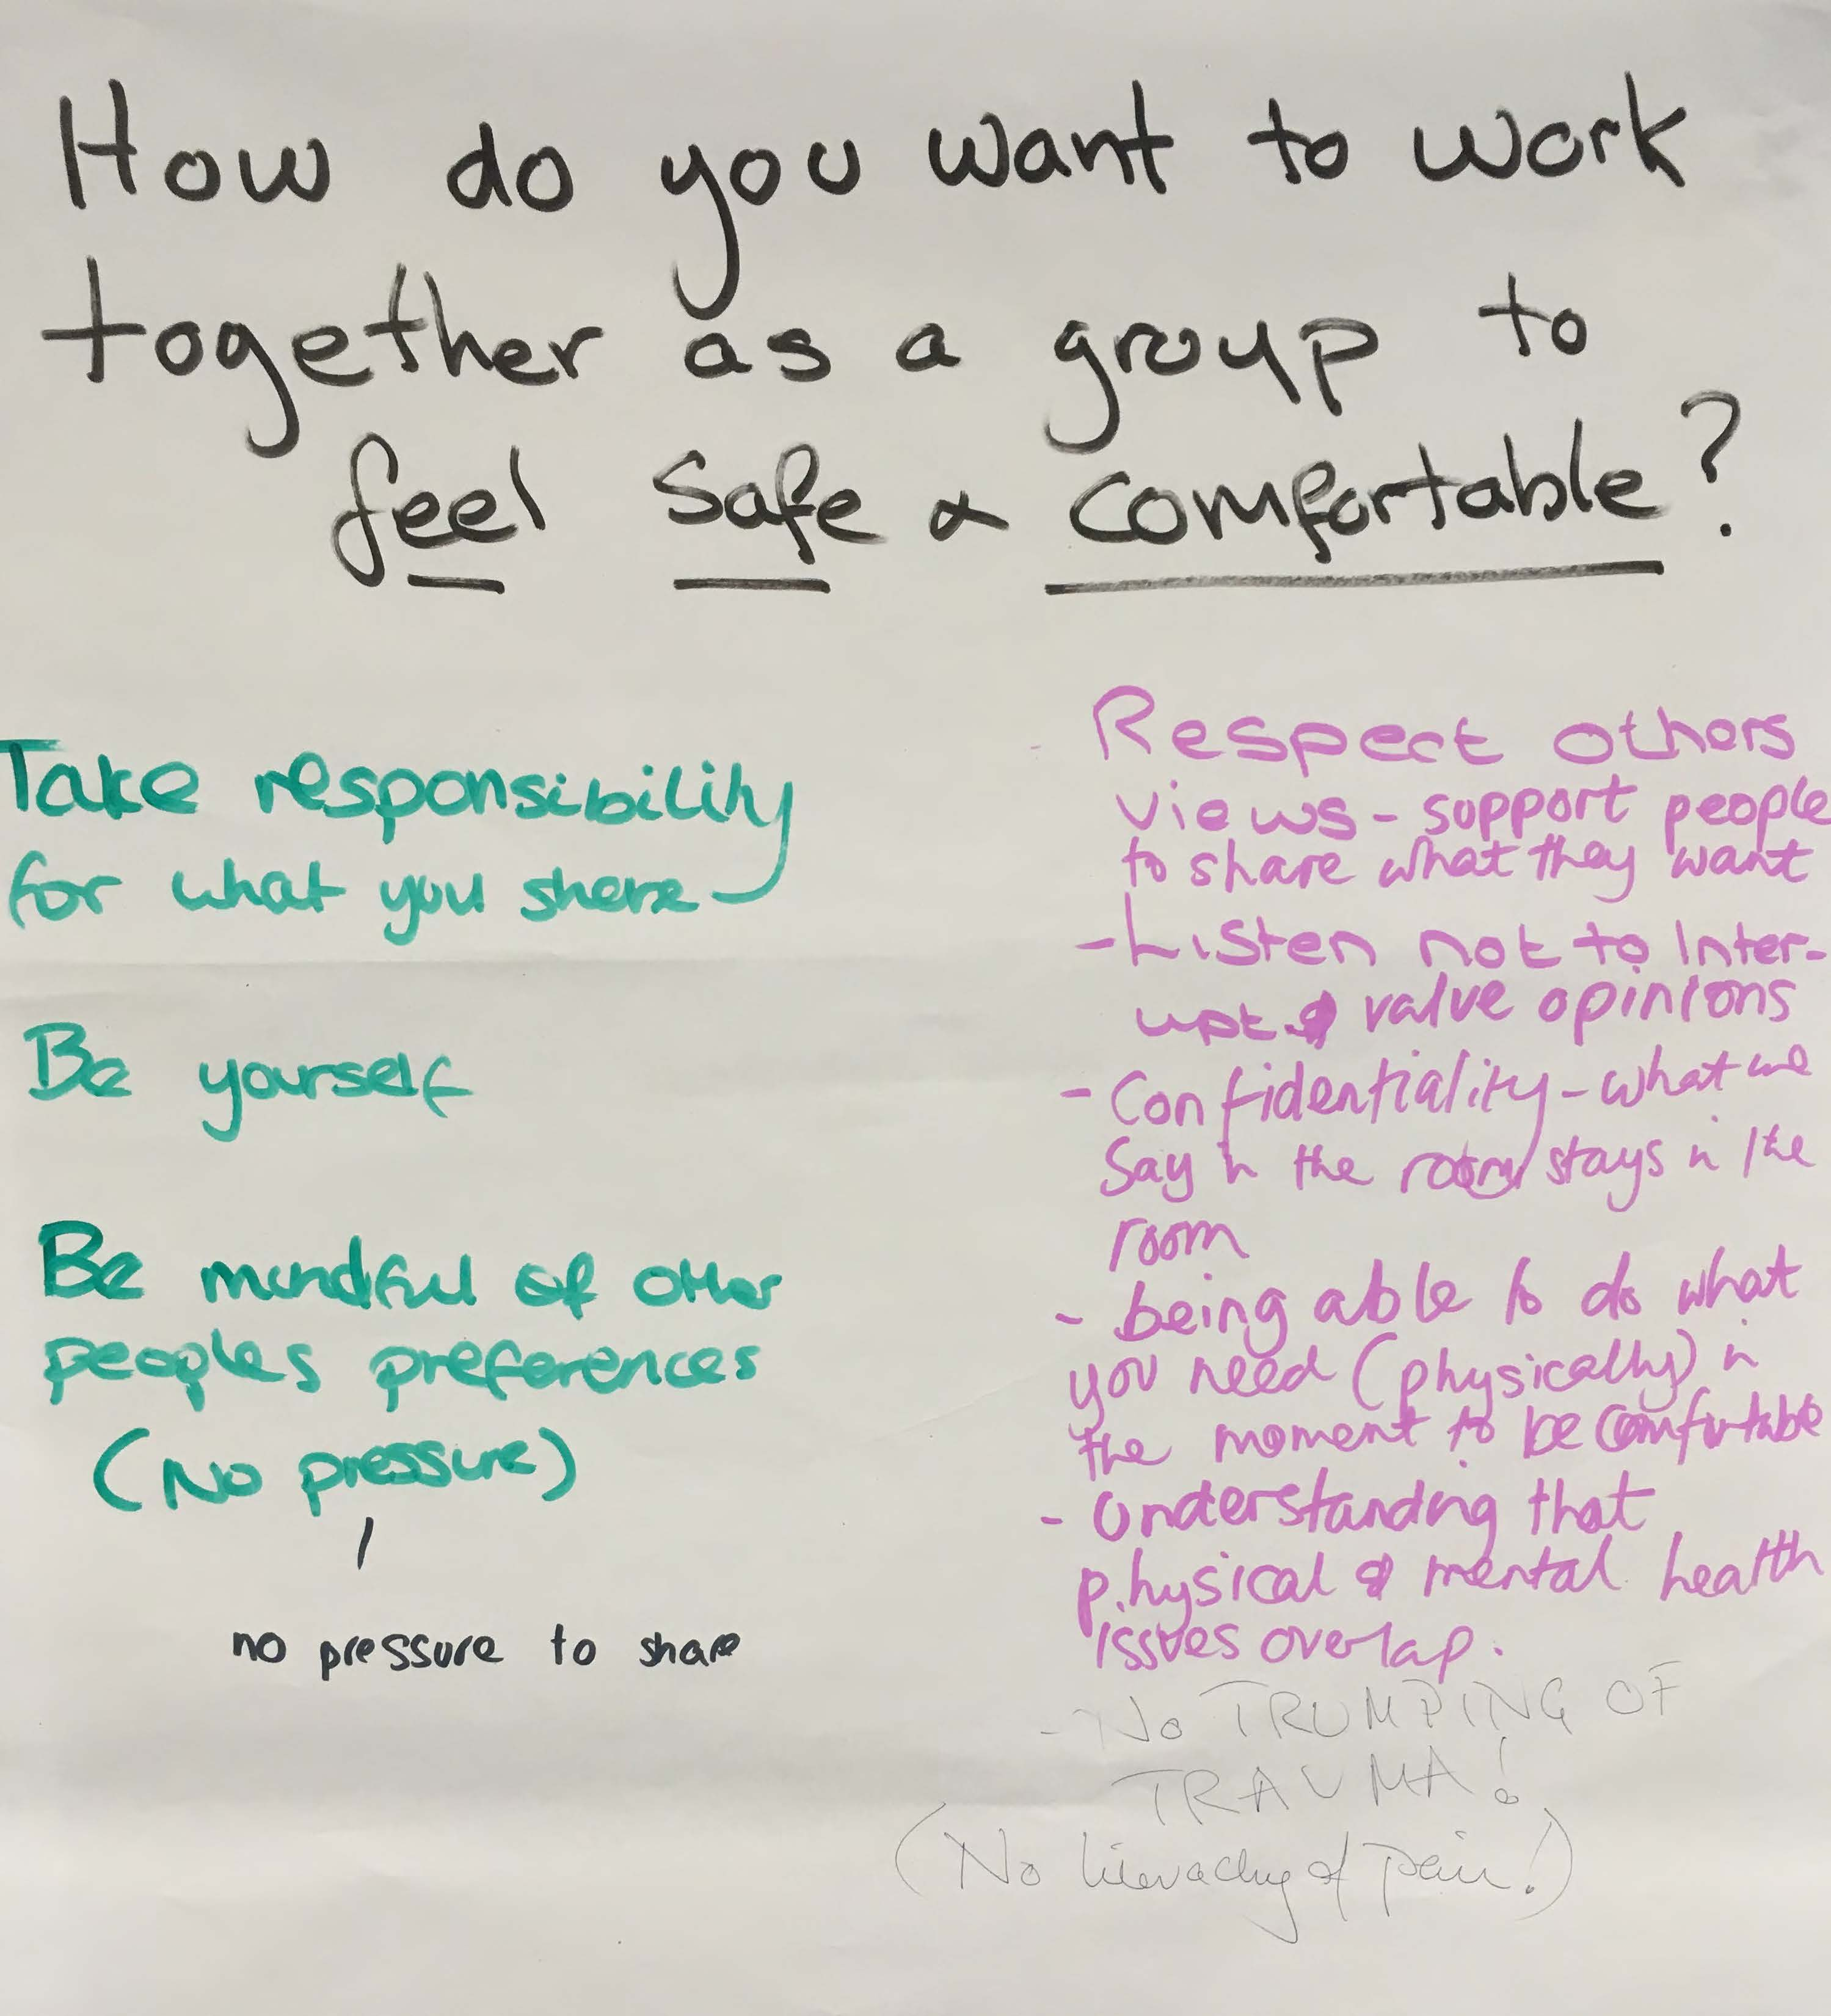 How do you want to work
together as a group to
feel safe & comfortable?
Take responsibility
for what you share
Be yourself
Be mindful of other
peoples preferences
(No pressure)
no pressure to share
- Respect others
views - support people
to share what they want
- Listen not to Inter-
upt & value opinions
- Confidentiality - what we
say in the room stays in the
room
- being able to do what
you need (physically) in
the moment to be comfortable
- Understanding that
physical & mental health
issues overlap.
- No TRUMPING OF
TRAUMA!
(No hierachy of pain!)